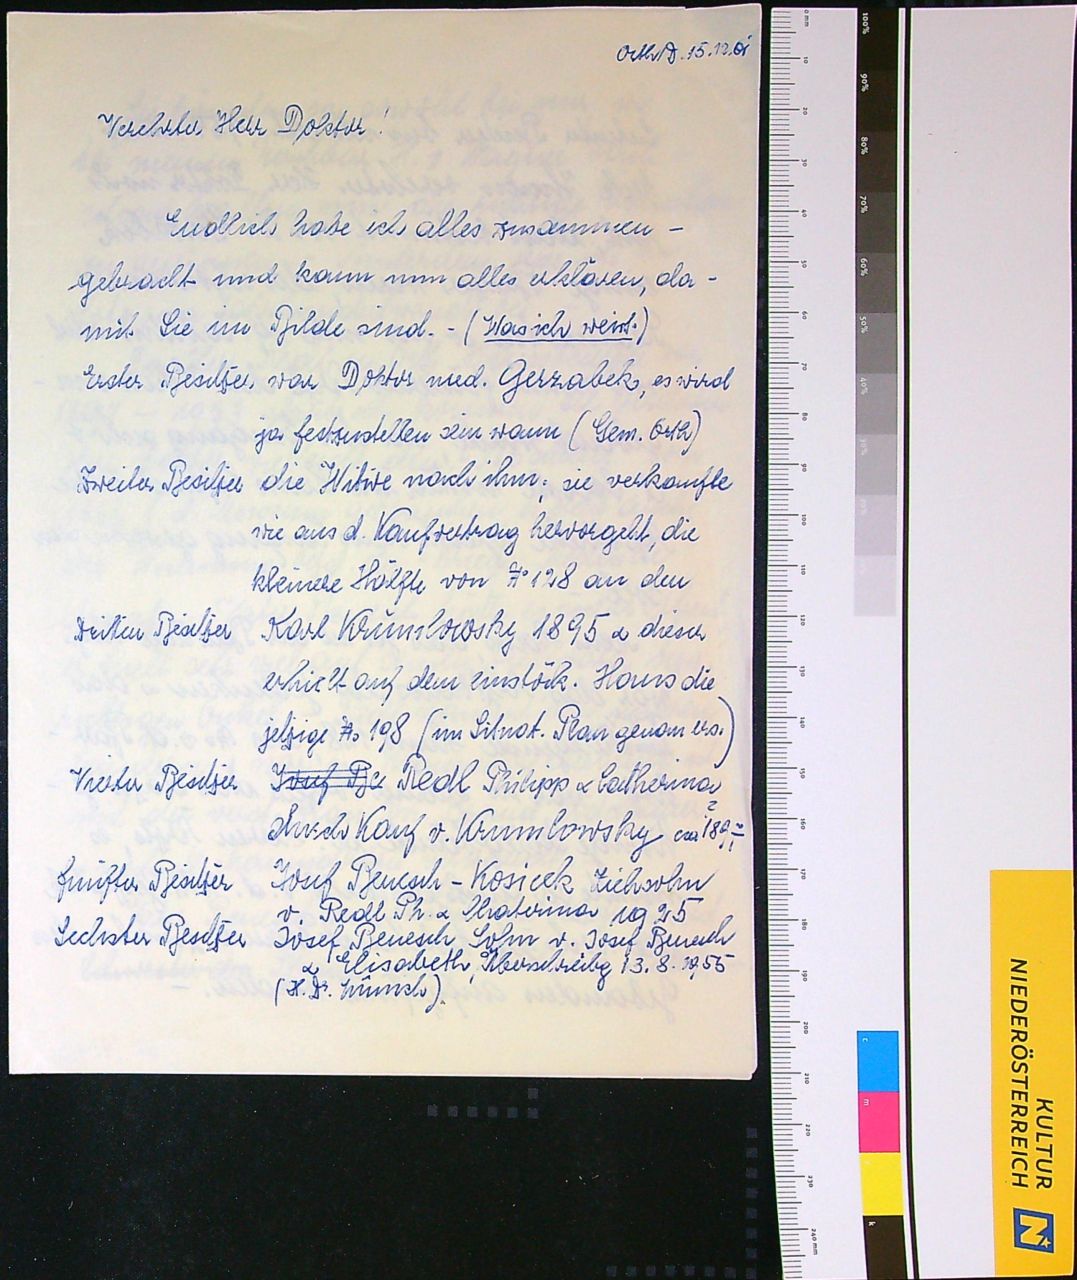 Orth/D. 15.12.61
Verehrter Herr Doktor!
Endlich habe ich alles zusammen-
gebracht und kann nun alles erklären, da-
mit Sie im Bilde sind. - (Was ich weiss.)
Erster Besitzer war Doktor med. Gerzabek, es wird
ja festzustellen sein wann (Gem. Orth)
Zweiter Besitzer die Witwe nach ihm; sie verkaufte
wie aus d. Kaufvertrag hervorgeht, die
kleinere Hälfte von No 128 an den
Dritten Besitzer Karl Krumlowsky 1895 & dieser
erhielt auf dem einstöck. Haus die
jetzige No 198 (im Situat. Plan genau ers.)
Vierter Besitzer Josef Be Redl Philipp & Catherina
durch Kauf v. Krumlowsky ca 189?
fünfter Besitzer Josef Benesch - Kosicek Ziehsohn
v. Redl Ph. & Katerina 1925
Sechster Besitzer Josef Benesch, Sohn v. Josef Benesch
& Elisabeth Überschreibg 13.8.1955
(H. Dr. Wünsch).
0 mm
10
20
30
40
50
60
70
80
90
100
110
120
130
140
150
160
170
180
190
200
210
220
230
240 mm
100%
90%
80%
70%
60%
50%
40%
30%
20%
10%
c
m
y
k
KULTUR
NIEDERÖSTERREICH
N